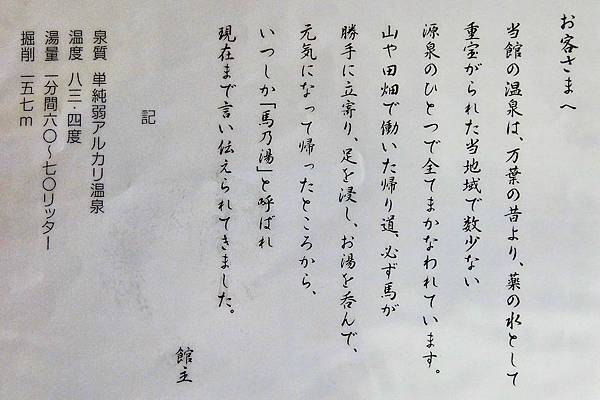 お客さまへ
当館の温泉は、万葉の昔より、薬の水として
重宝がられた当地域で数少ない
源泉のひとつで全てまかなわれています。
山や田畑で働いた帰り道、必ず馬が
勝手に立寄り、足を浸し、お湯を呑んで、
元気になって帰ったところから、
いつしか「馬乃湯」と呼ばれ
現在まで言い伝えられてきました。
館主
記
泉質 単純弱アルカリ温泉
温度 八三・四度
湯量 一分間六〇～七〇リッター
掘削 一五七m